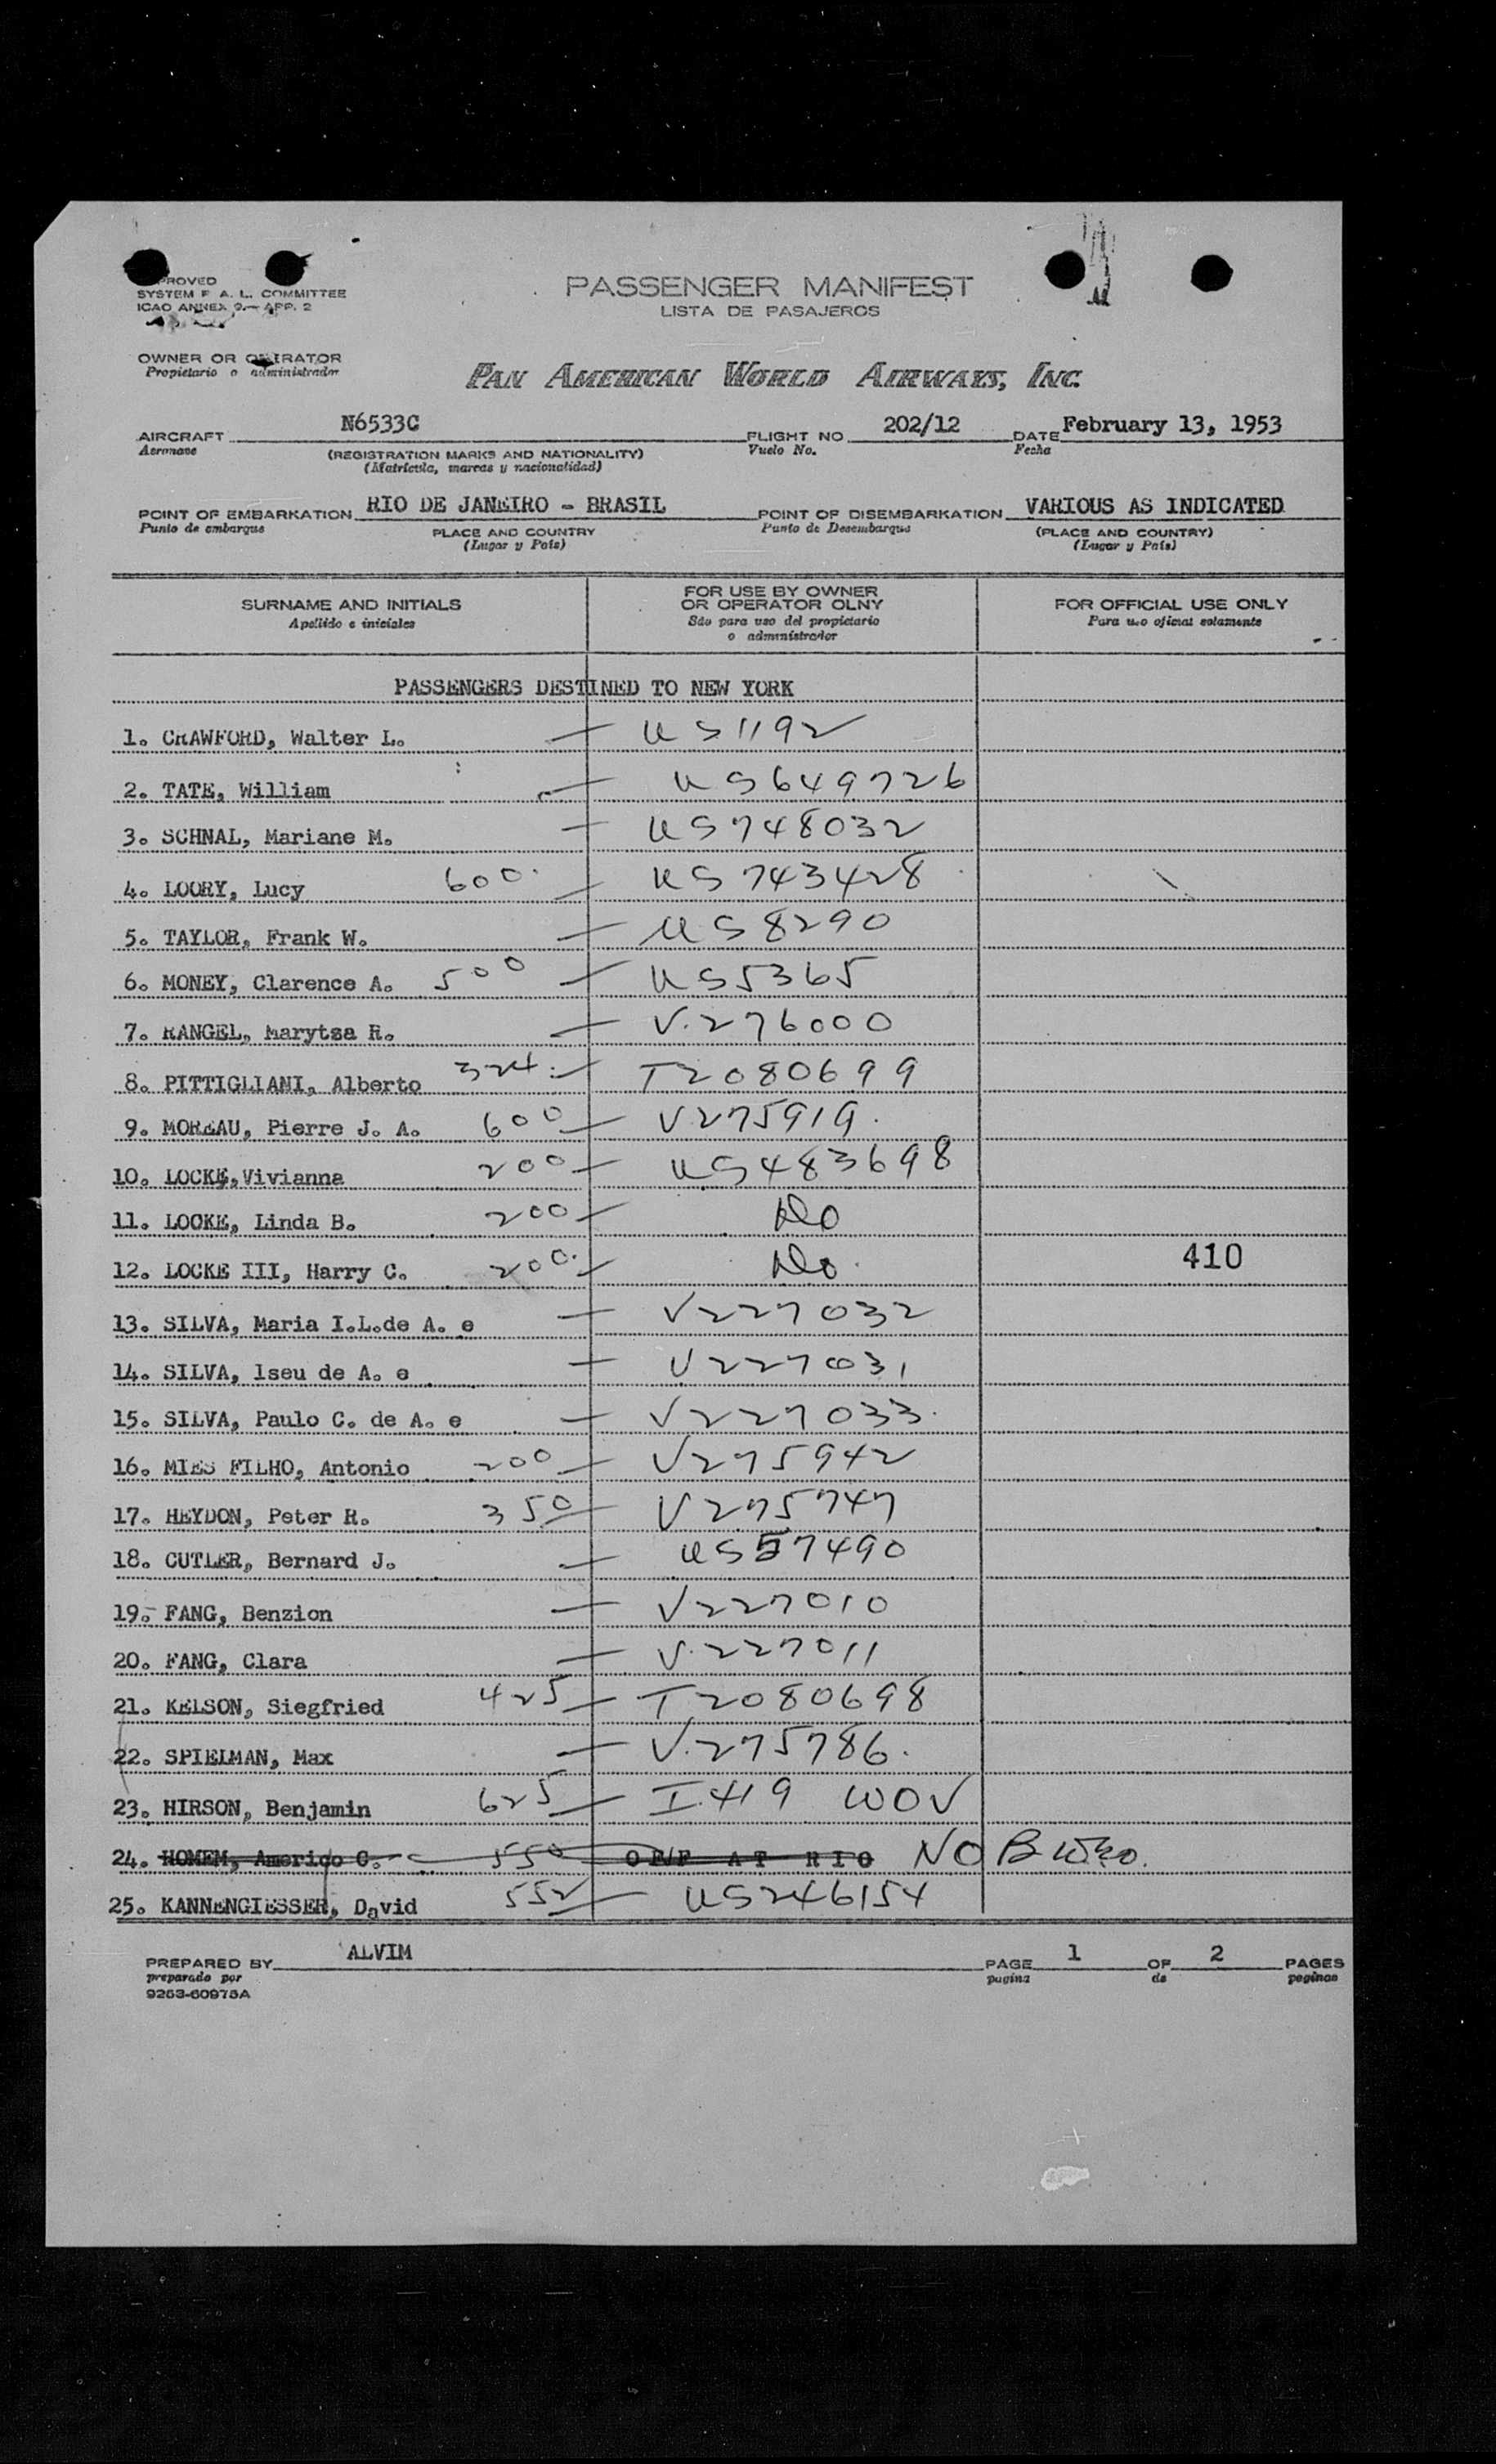 PROVED
SYSTEM F. A. L. COMMITTEE
ICAO ANNEX 9 — APP. 2
PASSENGER MANIFEST
LISTA DE PASAJEROS
OWNER OR OPERATOR
Propietario o administrador
PAN AMERICAN WORLD AIRWAYS, INC.
AIRCRAFT N6533C FLIGHT NO. 202/12 DATE February 13, 1953
Aeronave (REGISTRATION MARKS AND NATIONALITY) Vuelo No. Fecha
(Matrícula, marcas y nacionalidad)
POINT OF EMBARKATION RIO DE JANEIRO - BRASIL POINT OF DISEMBARKATION VARIOUS AS INDICATED
Punto de embarque PLACE AND COUNTRY Punto de Desembarque (PLACE AND COUNTRY)
(Lugar y País) (Lugar y País)
SURNAME AND INITIALS FOR USE BY OWNER FOR OFFICIAL USE ONLY
Apellido e iniciales OR OPERATOR OLNY Para uso oficial solamente
Sólo para uso del propietario
o administrador
PASSENGERS DESTINED TO NEW YORK
1. CRAWFORD, Walter L. — US1192
2. TATE, William — US649726
3. SCHNAL, Mariane M. — US748032
4. LOORY, Lucy 600. — US743428
5. TAYLOR, Frank W. — US8290
6. MONEY, Clarence A. 500 — US5365
7. RANGEL, Marytsa R. — V.276000
8. PITTIGLIANI, Alberto 324. — T2080699
9. MOREAU, Pierre J. A. 600 — V275919.
10. LOCKE, Vivianna 200 — US483698
11. LOCKE, Linda B. 200 — Do
12. LOCKE III, Harry C. 200. — Do. 410
13. SILVA, Maria I.L.de A. e — V227032
14. SILVA, Iseu de A. e — V227031
15. SILVA, Paulo C. de A. e — V227033.
16. MIES FILHO, Antonio 200 — V275942
17. HEYDON, Peter R. 350 — V275747
18. CUTLER, Bernard J. — US57490
19. FANG, Benzion — V227010
20. FANG, Clara — V.227011
21. KELSON, Siegfried 425 — T2080698
22. SPIELMAN, Max — V.275786.
23. HIRSON, Benjamin 625 — I.419 WOV
24. HOMEM, Americo C. 550 OFF AT RIO NO
25. KANNENGIESSER, David 552 — US246154
PREPARED BY ALVIM PAGE 1 OF 2 PAGES
preparado por pagina de paginas
9263-60975A